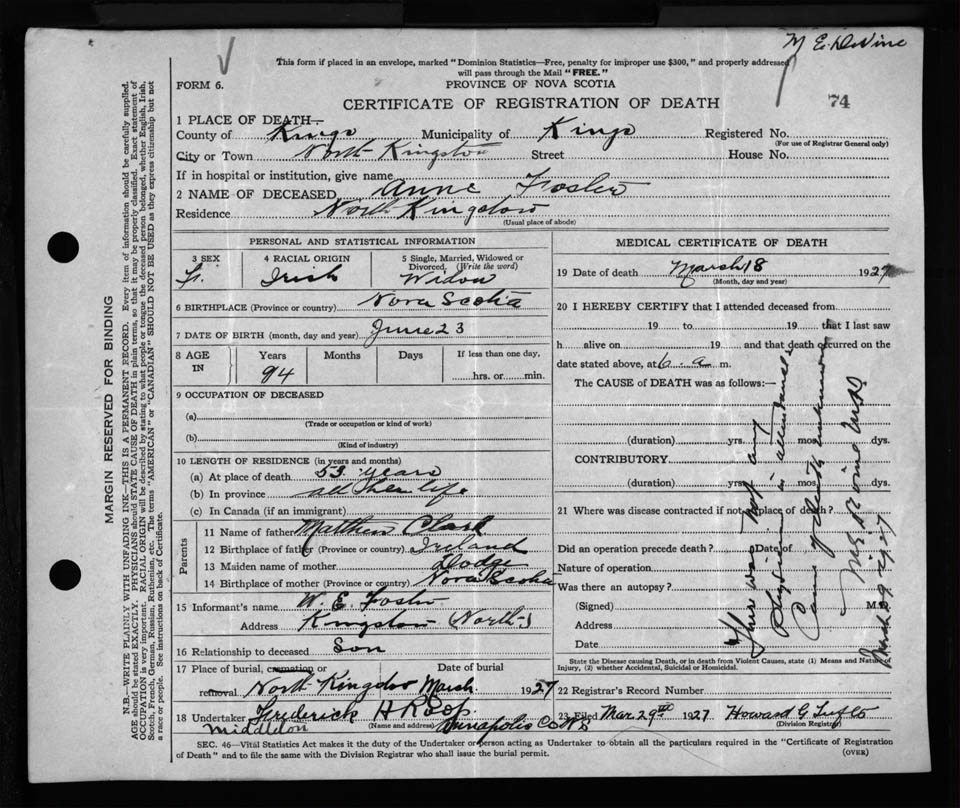 M E. DeVine
This form if placed in an envelope, marked "Dominion Statistics—Free, penalty for improper use $300," and properly addressed
will pass through the Mail "FREE."
FORM 6.
PROVINCE OF NOVA SCOTIA
CERTIFICATE OF REGISTRATION OF DEATH
74
1 PLACE OF DEATH—
County of Kings Municipality of Kings Registered No.
(For use of Registrar General only)
City or Town North Kingston Street House No.
If in hospital or institution, give name
2 NAME OF DECEASED Anne Foster
Residence North Kingston
(Usual place of abode)
PERSONAL AND STATISTICAL INFORMATION
3 SEX 4 RACIAL ORIGIN 5 Single, Married, Widowed or Divorced. (Write the word)
F. Irish Widow
6 BIRTHPLACE (Province or country) Nova Scotia
7 DATE OF BIRTH (month, day and year) June 23
8 AGE IN Years Months Days If less than one day,
94 hrs. or min.
9 OCCUPATION OF DECEASED
(a)
(Trade or occupation or kind of work)
(b)
(Kind of industry)
10 LENGTH OF RESIDENCE (in years and months)
(a) At place of death 53 years
(b) In province all her life
(c) In Canada (if an immigrant)
Parents
11 Name of father Matthew Clark
12 Birthplace of father (Province or country) Ireland
13 Maiden name of mother Dodge
14 Birthplace of mother (Province or country) Nova Scotia
15 Informant's name W. E. Foster
Address Kingston (North)
16 Relationship to deceased Son
17 Place of burial, cremation or Date of burial
removal North Kingston March 1927
18 Undertaker Frederick H Roop
(Name and address)
Middleton Annapolis Co NS
MEDICAL CERTIFICATE OF DEATH
19 Date of death March 18 1927
(Month, day and year)
20 I HEREBY CERTIFY that I attended deceased from
19 to 19 that I last saw
h alive on 19 and that death occurred on the
date stated above, at 6 a m.
The CAUSE of DEATH was as follows:—
(duration) yrs. mos. dys.
CONTRIBUTORY
(duration) yrs. mos. dys.
21 Where was disease contracted if not at place of death?
Did an operation precede death? Date of
Nature of operation
Was there an autopsy?
(Signed) M.D.
Address
Date
There was not any
Physician in attendance
Cause of death unknown
State the Disease causing Death, or in death from Violent Causes, state (1) Means and Nature of
Injury, (2) whether Accidental, Suicidal or Homicidal.
22 Registrar's Record Number
23 Filed Mar 29th 1927 Howard G
(Division Registrar)
SEC. 46—Vital Statistics Act makes it the duty of the Undertaker or person acting as Undertaker to obtain all the particulars required in the "Certificate of Registration
of Death" and to file the same with the Division Registrar who shall issue the burial permit. (OVER)
MARGIN RESERVED FOR BINDING
N.B.—WRITE PLAINLY WITH UNFADING INK—THIS IS A PERMANENT RECORD. Every item of information should be carefully supplied.
AGE should be stated EXACTLY. PHYSICIANS should STATE CAUSE OF DEATH in plain terms, so that it may be properly classified. Exact statement of
OCCUPATION is very important. RACIAL ORIGIN will be described by stating to what people or tongue the deceased person belonged, whether English, Irish,
Scotch, French, German, Russian, Ruthenian, etc. The terms "AMERICAN" or "CANADIAN" SHOULD NOT BE USED as they express citizenship but not
a race or people. See instructions on back of Certificate.